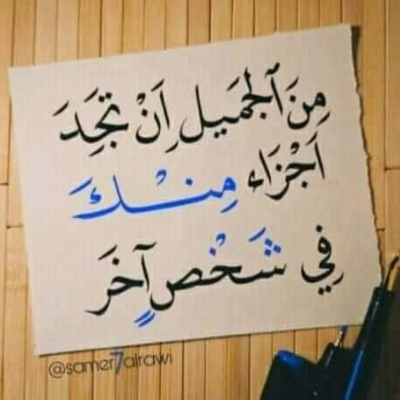 مِنَ ٱلْجَمِيل اِنْ تَجِدَ
اَجْزَاء مِنْكَ
فِي شَخْصٍ آخَرَ
@samer7alrawi